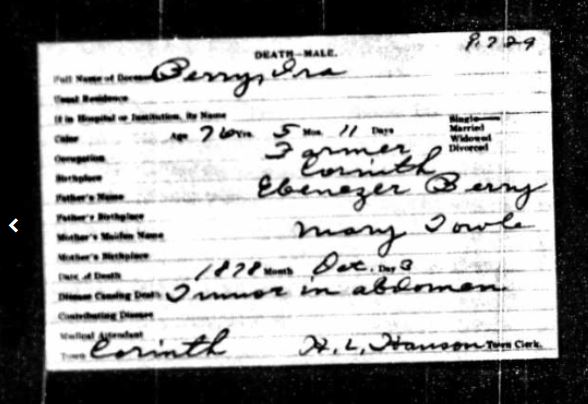 DEATH—MALE.
Full Name of Deceased Berry, Ira
Usual Residence
If in Hospital or Institution, its Name
Color Age 76 Yrs. 5 Mos. 11 Days
Single
Married
Widowed
Divorced
Occupation Farmer
Birthplace Corinth
Father's Name Ebenezer Berry
Father's Birthplace
Mother's Maiden Name Mary Towle
Mother's Birthplace
Date of Death 1878 Month Oct. Day 3
Disease Causing Death Tumor in abdomen
Contributing Disease
Medical Attendant
Town Corinth H. L. Hanson Town Clerk.